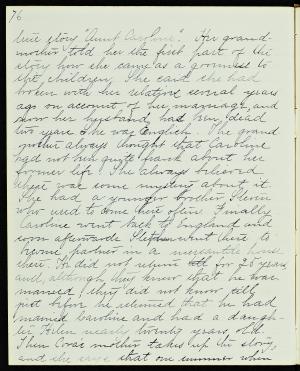 76
true story "Aunt Caroline". Her grand-
mother told her the first part of the
story how she came as a governess to
the children. She said she had
broken with her relatives several years
ago on account of her marriage, and
now her husband had been dead
two years. She was English. The grand
mother always thought that Caroline
had not been quite frank about her
former life. She always believed
there was some mystery about it.
She had a younger brother Steven
who used to come there often. Finally
Caroline went back to England and
soon afterwards Steven went there to
become partner in a mercantile house
there. He did not return for 25 years,
and, although they knew that he was
married they did not know till
just before he returned that he had
married Caroline and had a daugh-
ter Helen nearly twenty years old.
Then Cora's mother takes up the story,
and she says that one summer when